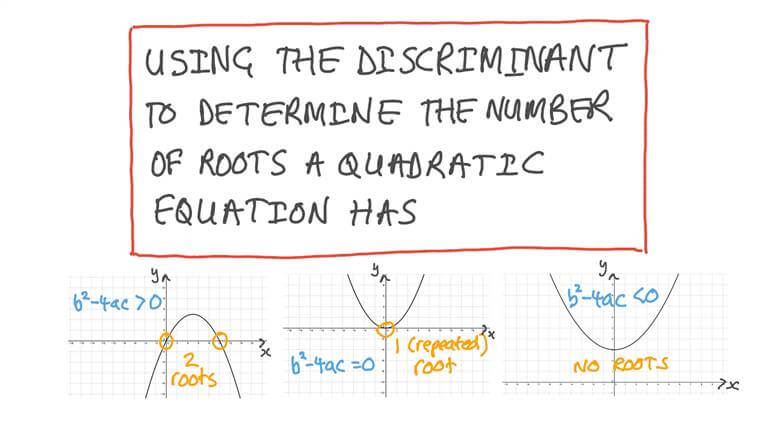 USING THE DISCRIMINANT
TO DETERMINE THE NUMBER
OF ROOTS A QUADRATIC
EQUATION HAS
y
b²-4ac > 0
x
2
roots
y
x
1 (repeated)
root
b²-4ac = 0
y
b²-4ac < 0
NO ROOTS
x